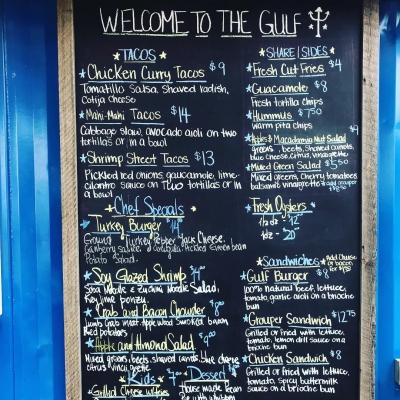 WELCOME TO THE GULF
TACOS
Chicken Curry Tacos $9
Tomatillo Salsa, Shaved radish,
Cotija Cheese
Mahi-Mahi Tacos $14
Cabbage slaw, avocado aioli on two
tortillas or in a bowl
Shrimp Street Tacos $13
Pickled red onions, guacamole, lime-
cilantro sauce on two tortillas or in
a bowl
Chef Specials
Turkey Burger
Ground Turkey, Pepper Jack Cheese,
Cranberry sauce
Potato Salad.
Soy Glazed Shrimp
Soba Noodle & Zucchini Noodle Salad,
Key lime ponzu.
Crab and Bacon Chowder
Lump Crab meat, Applewood Smoked bacon,
Red potatoes
Apple and Almond Salad
Mixed greens, beets, shaved carrots, blue cheese,
citrus vinaigrette
Kids
Grilled Cheese w/fries
Dessert
House made
SHARE | SIDES
Fresh Cut Fries $4
Guacamole $8
Fresh tortilla chips
Hummus $7.50
warm pita chips
Apple & Macadamia Nut Salad $9
greens, beets, shaved carrots,
blue cheese, citrus vinaigrette
Mixed Green Salad $5.50
Mixed greens, Cherry tomatoes
balsamic vinaigrette *Add grouper
Fresh Oysters
1/2 dz - 12
1 dz - 20
Sandwiches
Add Cheese
or bacon
for
Gulf Burger $8
100% natural beef, lettuce,
tomato, garlic aioli on a brioche
bun
Grouper Sandwich $12.75
Grilled or fried with lettuce,
tomato, lemon dill sauce on a
brioche bun
Chicken Sandwich $8
Grilled or fried with lettuce,
tomato, Spicy buttermilk
Sauce on a brioche bun